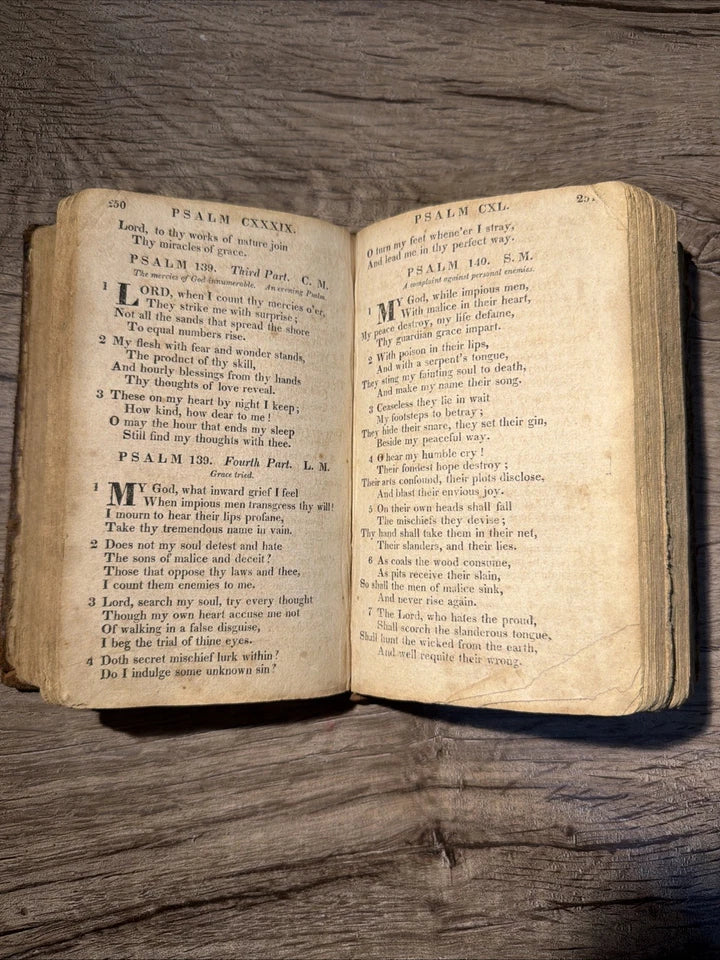 250
PSALM CXXXIX.
Lord, to thy works of nature join
Thy miracles of grace.
PSALM 139. Third Part. C. M.
The mercies of God innumerable. An evening Psalm.
1 LORD, when I count thy mercies o'er,
They strike me with surprise;
Not all the sands that spread the shore
To equal numbers rise.
2 My flesh with fear and wonder stands,
The product of thy skill,
And hourly blessings from thy hands
Thy thoughts of love reveal.
3 These on my heart by night I keep;
How kind, how dear to me!
O may the hour that ends my sleep
Still find my thoughts with thee.
PSALM 139. Fourth Part. L. M.
Grace tried.
1 MY God, what inward grief I feel
When impious men transgress thy will!
I mourn to hear their lips profane,
Take thy tremendous name in vain.
2 Does not my soul detest and hate
The sons of malice and deceit?
Those that oppose thy laws and thee,
I count them enemies to me.
3 Lord, search my soul, try every thought
Though my own heart accuse me not
Of walking in a false disguise,
I beg the trial of thine eyes.
4 Doth secret mischief lurk within?
Do I indulge some unknown sin?
PSALM CXL.
O turn my feet whene'er I stray,
And lead me in thy perfect way.
PSALM 140. S. M.
A complaint against personal enemies.
1 MY God, while impious men,
With malice in their heart,
My peace destroy, my life defame,
Thy guardian grace impart.
2 With poison in their lips,
And with a serpent's tongue,
They sting my fainting soul to death,
And make my name their song.
3 Ceaseless they lie in wait
My footsteps to betray;
They hide their snare, they set their gin,
Beside my peaceful way.
4 O hear my humble cry!
Their fondest hope destroy;
Their arts confound, their plots disclose,
And blast their envious joy.
5 On their own heads shall fall
The mischiefs they devise;
Thy hand shall take them in their net,
Their slanders, and their lies.
6 As coals the wood consume,
As pits receive their slain,
So shall the men of malice sink,
And never rise again.
7 The Lord, who hates the proud,
Shall scorch the slanderous tongue,
Shall hunt the wicked from the earth,
And well requite their wrong.